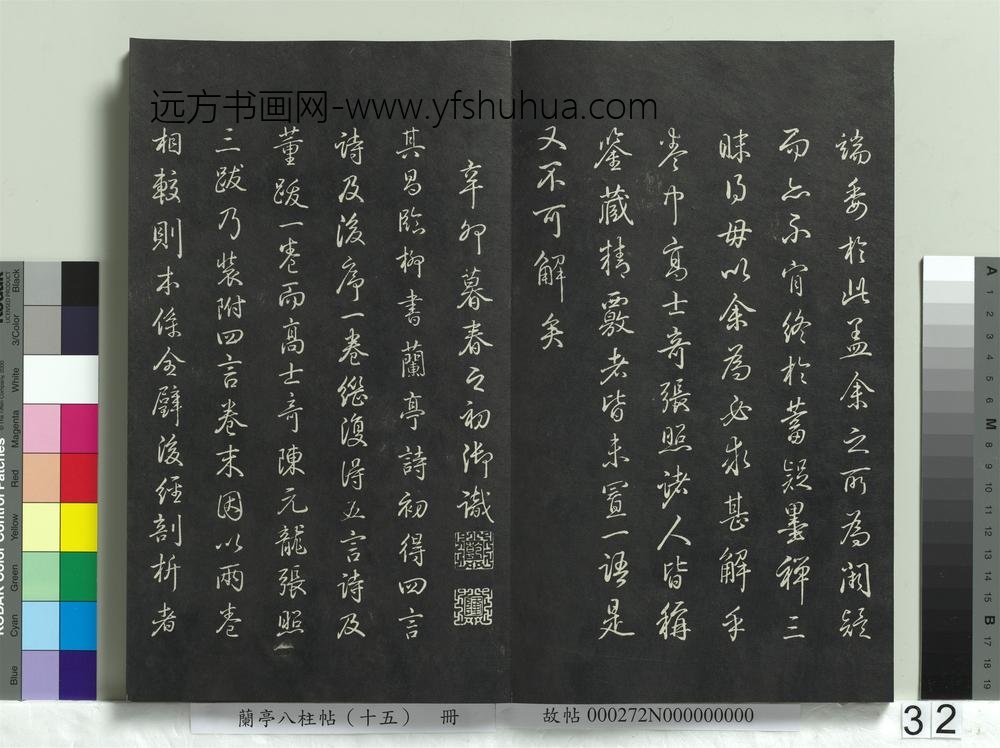 远方书画网-www.yfshuhua.com
端委於此盖余之所為闕疑
而亦不肯終於蓄疑墨禅三
昧得毋以余為必求甚解乎
卷中高士奇張照諸人皆稱
鉴藏精覈者皆未置一語是
又不可解矣
辛卯暮春之初御識
其昌臨柳書蘭亭詩初得四言
詩及後序一卷繼復得五言詩及
董跋一卷而高士奇陳元龍張照
三跋乃裝附四言卷末因以兩卷
相較則本係全璧後經剖析者
蘭亭八柱帖（十五） 冊
故帖 000272N000000000
32
KODAK Color Control Patches
Blue
Cyan
Green
Yellow
Red
Magenta
White
3/Color
Black
A 1 2 3 4 5 6 M 8 9 10 11 12 13 14 15 B 17 18 19